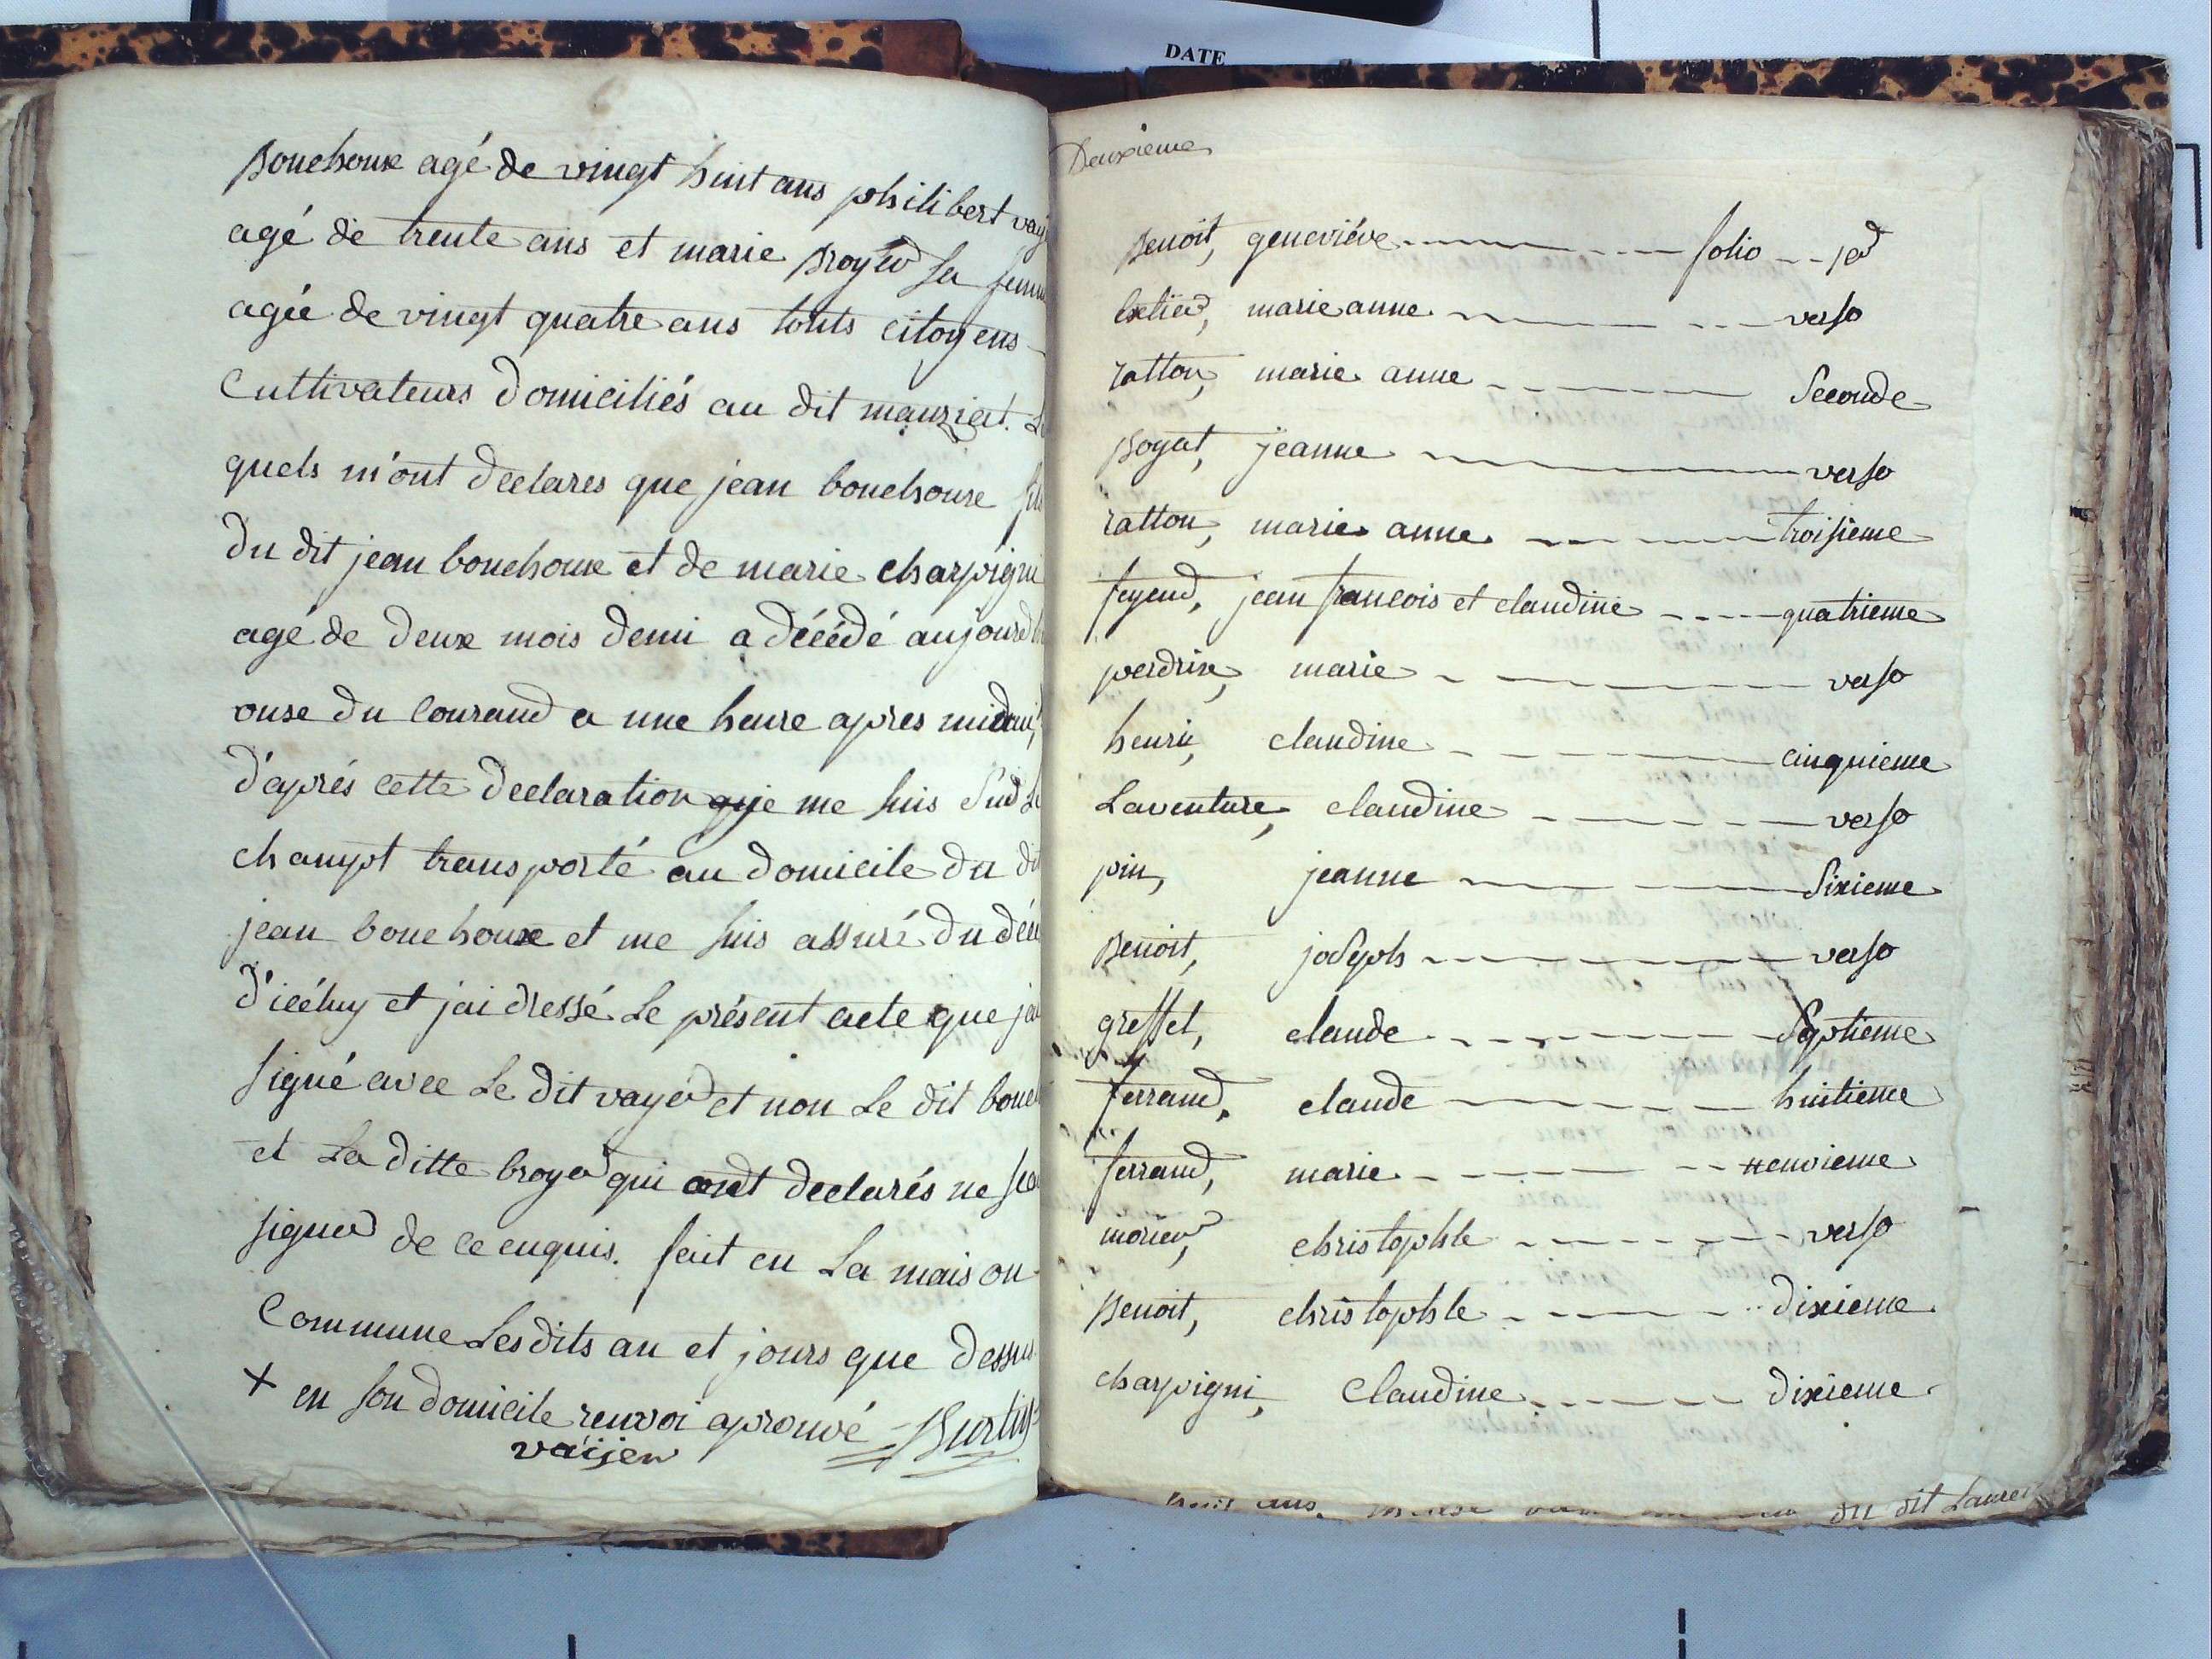 Bouchoux agé de vingt huit ans philibert vay
agé de trente ans et marie Broyer sa femm
agée de vingt quatre ans touts citoyens
Cultivateurs domiciliés au dit manziat. Le
quels m'ont declares que jean bouchoux fils
du dit jean bouchoux et de marie charpigni
agé de deux mois demi a décédé aujourdh
onse du courand a une heure apres midi
d'aprés cette declaration je me suis sur Le
champt transporté au domicile du dit
jean bouchoux et me suis assuré du déc
d'icéluy et j'ai dressé Le présent acte que jai
signé avec Le dit vayer et non Le dit bouch
et La ditte broyer qui ont declarés ne sca
signer de ce enquis. fait en La maison
Commune Lesdits an et jours que dessus
+ en son domicile renvoi aprouvé
vaijer
DATE
Deuxieme
Benoit, geneviéve folio 1er
marie anne verso
ratton, marie anne Seconde
Boyat, jeanne verso
ratton, marie anne troisieme
feyeud, jean francois et claudine quatrieme
perdrix, marie verso
henri, claudine cinquieme
Laventure, claudine verso
pin, jeanne Sixieme
Benoit, joseph verso
greffet, claude Septieme
ferrand, claude huitieme
ferrand, marie neuvieme
morier, christophle verso
Benoit, christophle dixieme
charpigni, Claudine dixieme
huit ans. du dit Lauren